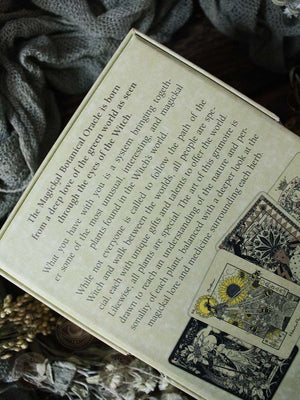 The Magickal Botanical Oracle is born
from a deep love of the green world as seen
through the eyes of the Witch.
What you have with you is a system bringing togeth-
er some of the most unusual, interesting, and magickal
plants found in the Witch's world.
While not everyone is called to follow the path of the
Witch and walk between the worlds, all people are spe-
cial, each with unique gifts and talents to offer the world.
Likewise, all plants are special. The art of this grimoire is
drawn to reach an understanding of the nature and per-
sonality of each plant, balanced with a deeper look at the
magickal lore and medicine surrounding each herb.